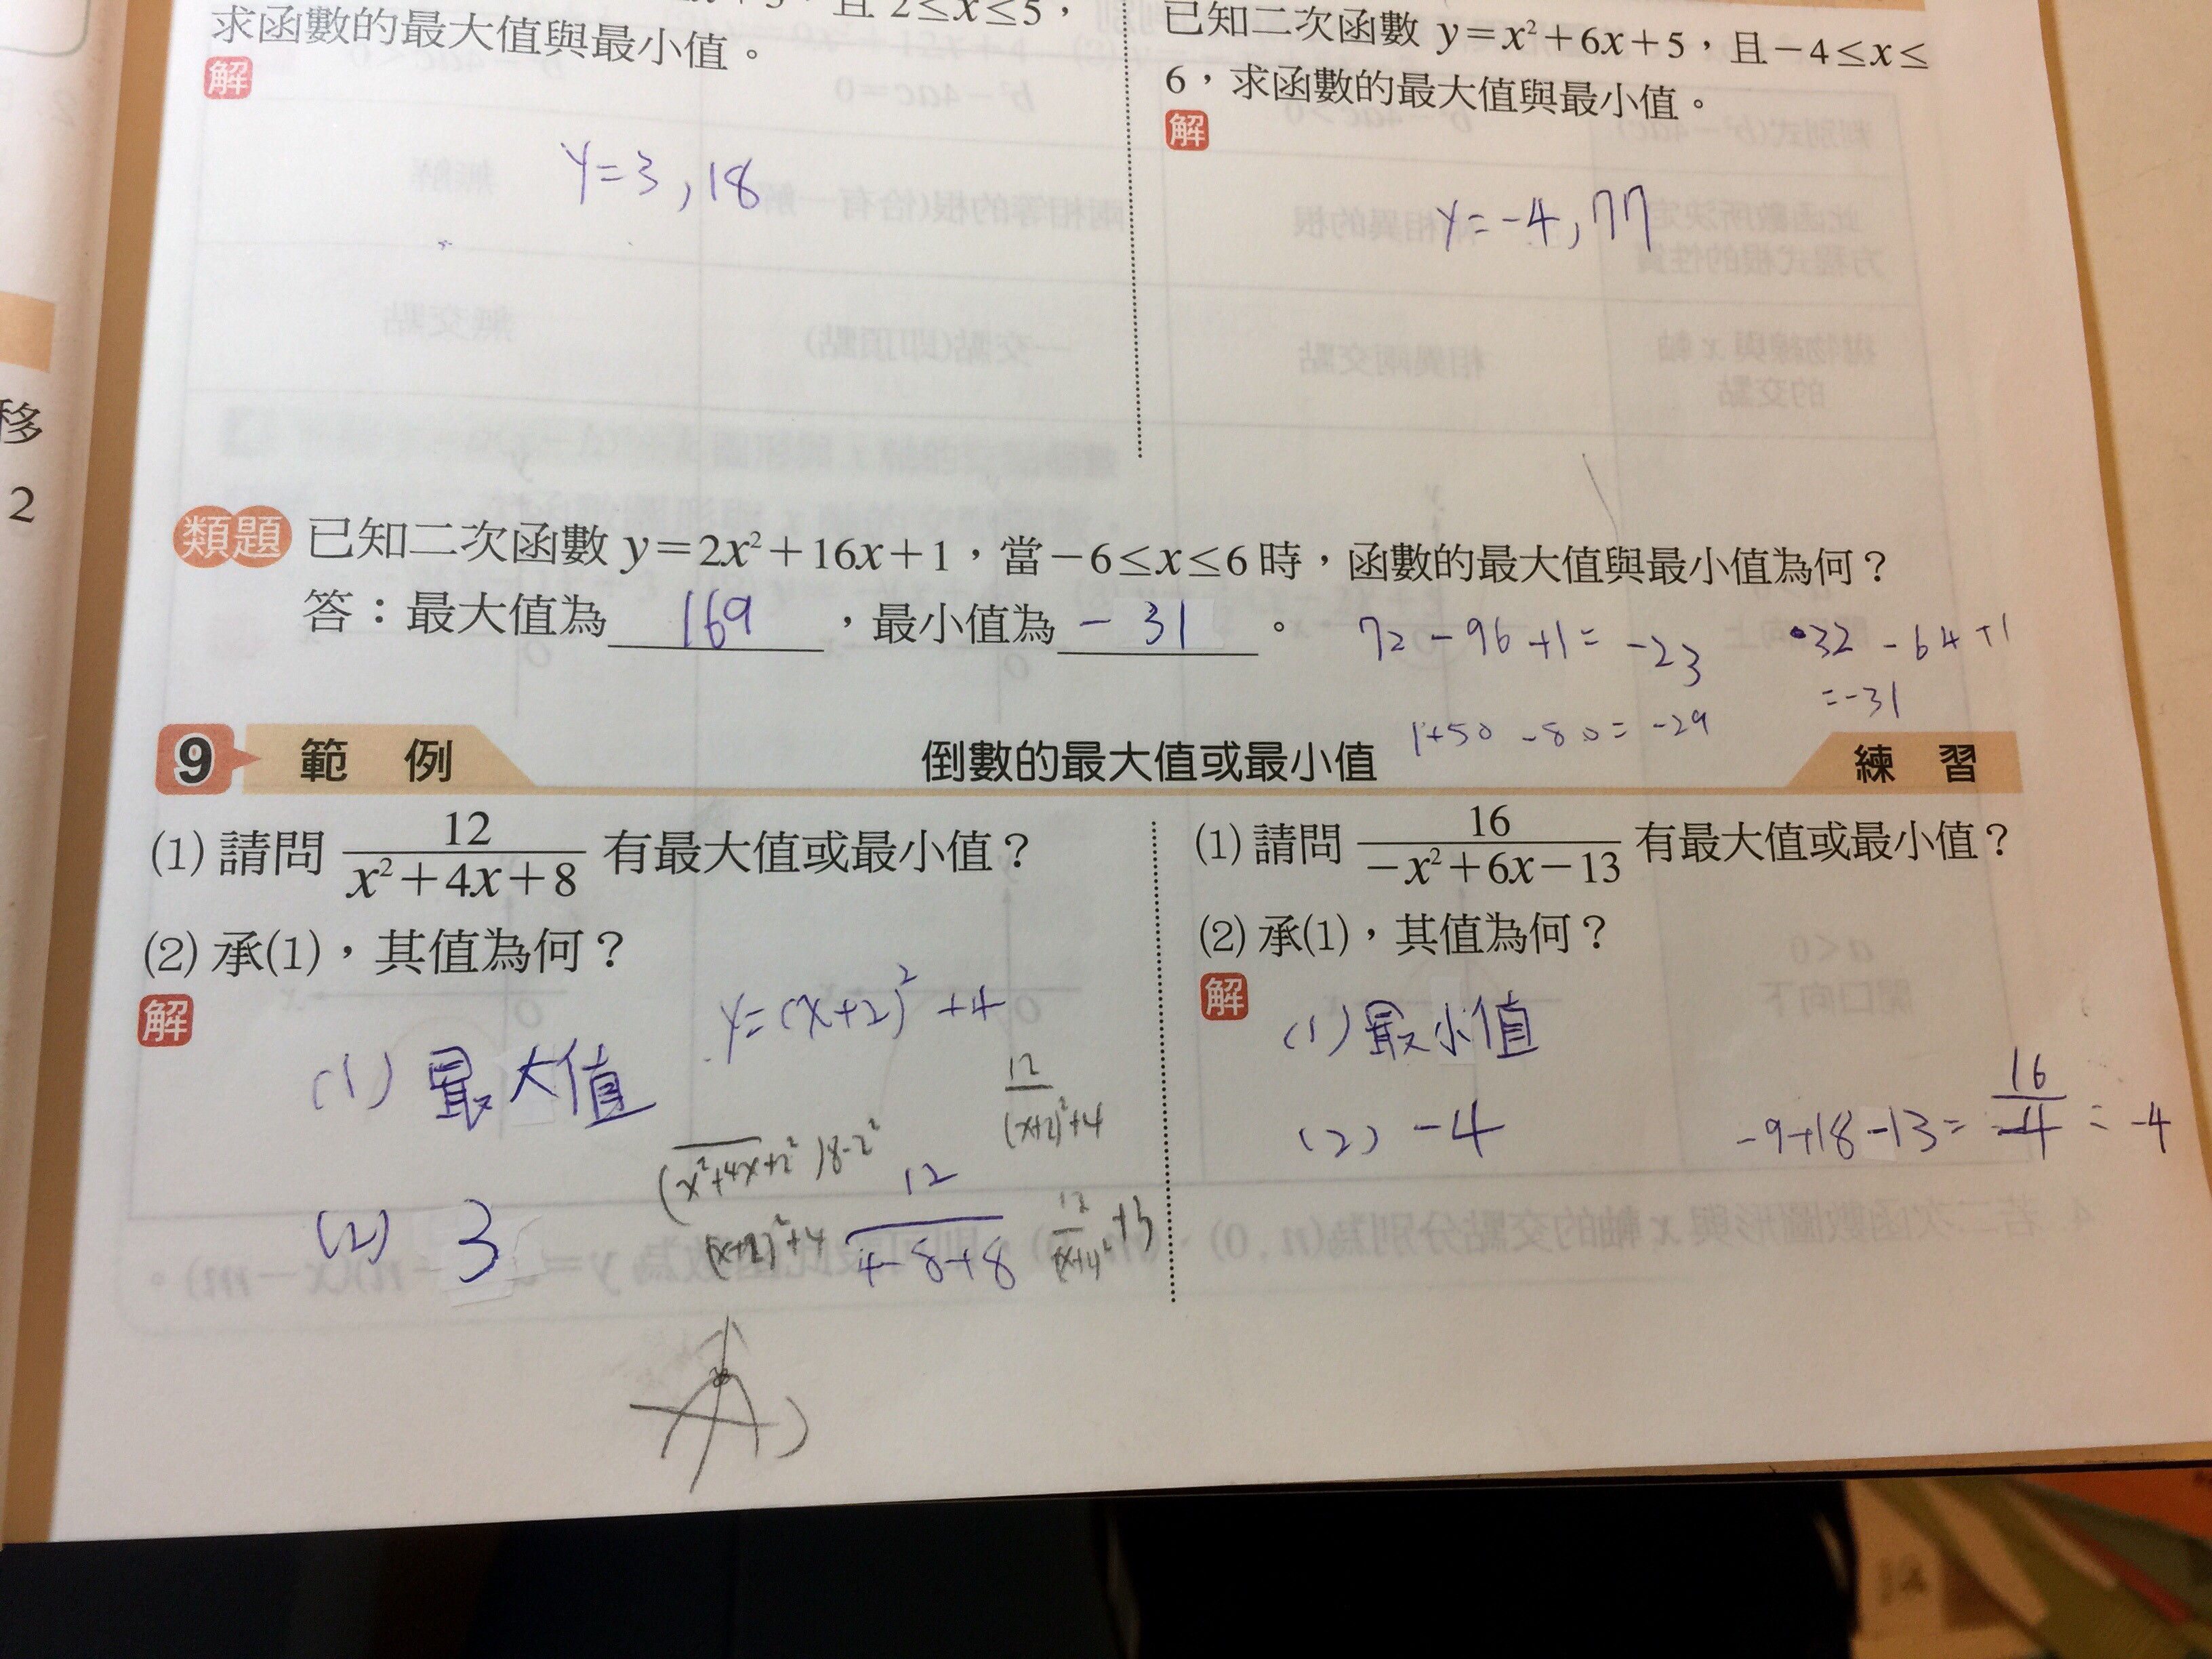 且 2≤x≤5，
求函數的最大值與最小值。
解
y=3,18
已知二次函數 y=x²+6x+5，且−4≤x≤
6，求函數的最大值與最小值。
解
y=-4,77
移
2
類題 已知二次函數 y=2x²+16x+1，當−6≤x≤6時，函數的最大值與最小值為何？
答：最大值為 169 ，最小值為 -31 。
72-96+1=-23
32-64+1
=-31
1+50-80=-29
9 範例 倒數的最大值或最小值 練習
(1) 請問 12/(x²+4x+8) 有最大值或最小值？
(2) 承(1)，其值為何？
解
y=(x+2)²+4
(1) 最大值
12/((x+2)²+4)
(x²+4x+2²)8-2²
(2) 3
(x+2)²+4
12/(4-8+8)
(1) 請問 16/(−x²+6x−13) 有最大值或最小值？
(2) 承(1)，其值為何？
解
(1) 最小值
(2) -4
-9+18-13= 16/-4 = -4